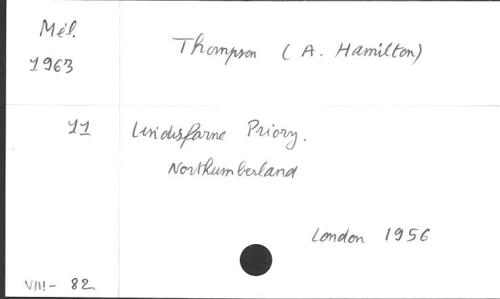 Mél.
1963
Thompson (A. Hamilton)
11
Lindisfarne Priory.
Northumberland
London 1956
VIII - 82